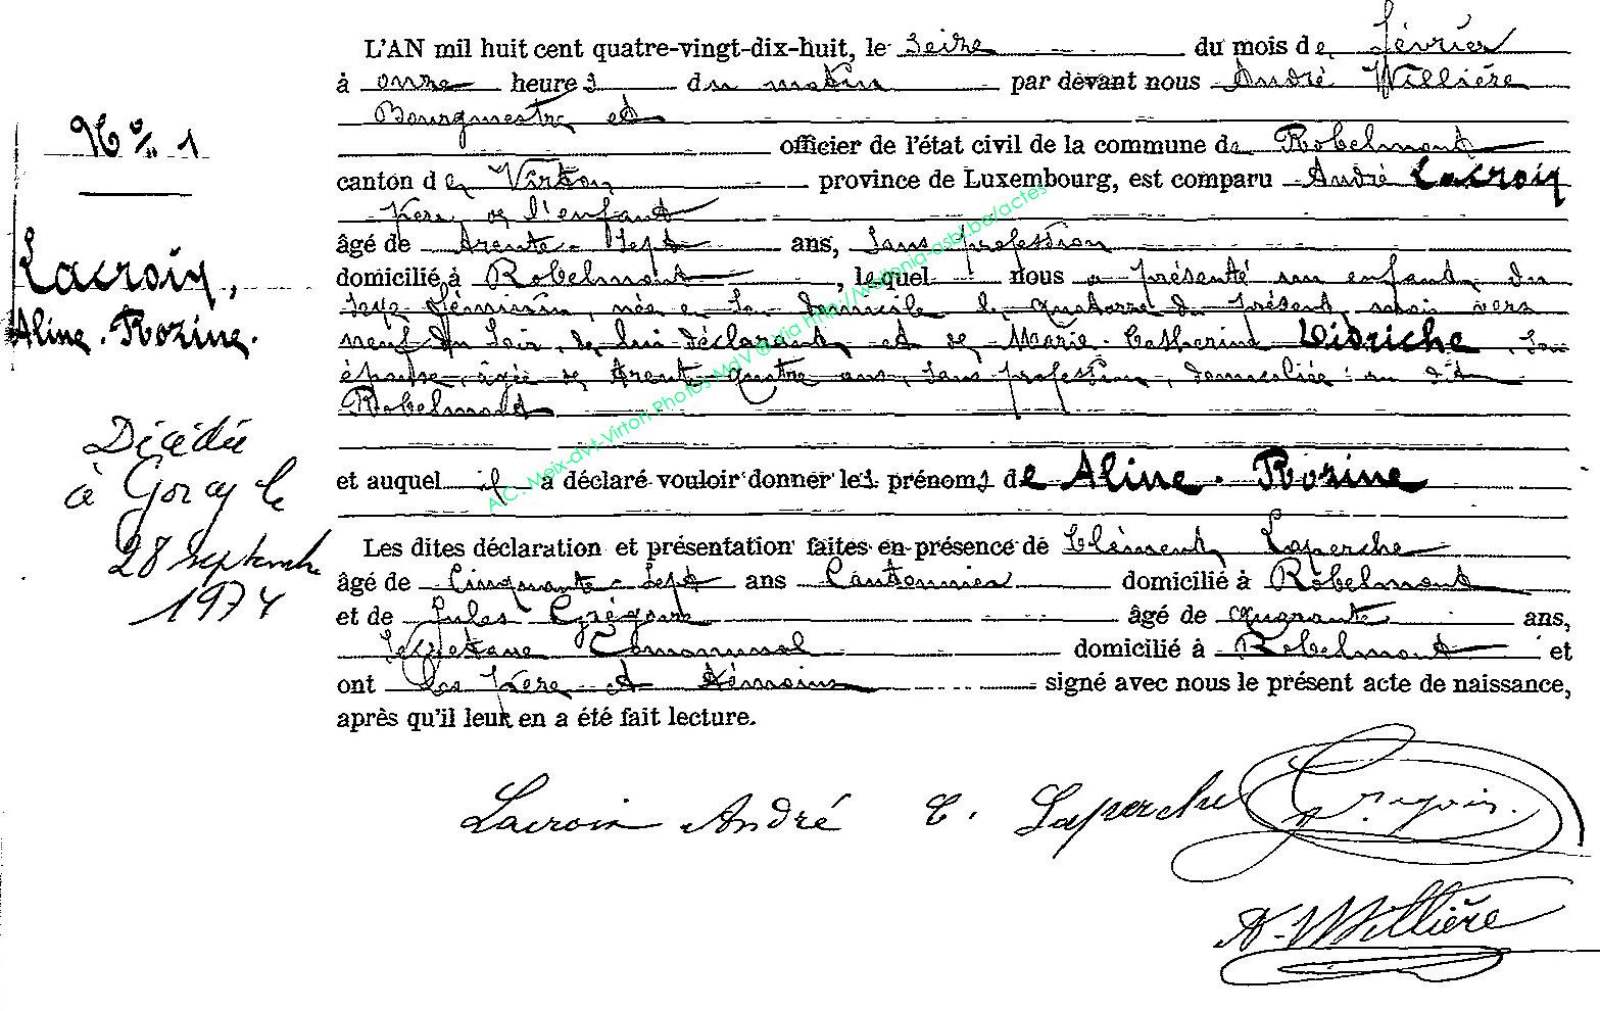 N° 1
Lacroix,
Aline-Rozine.
Décédée
à Gorcy le
28 septembre
1974
L'AN mil huit cent quatre-vingt-dix-huit, le seize du mois de février
à onze heures du matin par devant nous André Willière
Bourgmestre et
officier de l'état civil de la commune de Robelmont
canton de Virton province de Luxembourg, est comparu André Lacroix
père de l'enfant
âgé de trente-sept ans, sans profession
domicilié à Robelmont, lequel nous a présenté un enfant du
sexe féminin, née en son domicile le quatorze du présent mois vers
neuf du soir, de lui déclarant et de Marie-Catherine Widriche, son
épouse, âgée de trente-quatre ans, sans profession, domiciliée au dit
Robelmont
et auquel il a déclaré vouloir donner les prénoms de Aline-Rozine
Les dites déclaration et présentation faites en présence de Clément Laperche
âgé de cinquante-sept ans Cantonnier domicilié à Robelmont
et de Jules Grégoire âgé de quarante ans,
Secrétaire Communal domicilié à Robelmont et
ont les père et témoins signé avec nous le présent acte de naissance,
après qu'il leur en a été fait lecture.
Lacroix André C. Laperche Grégoire.
A. Willière
A.C. Meix-dvt-Virton Photos MdV @ via http://wallonia-asbl.be/actes